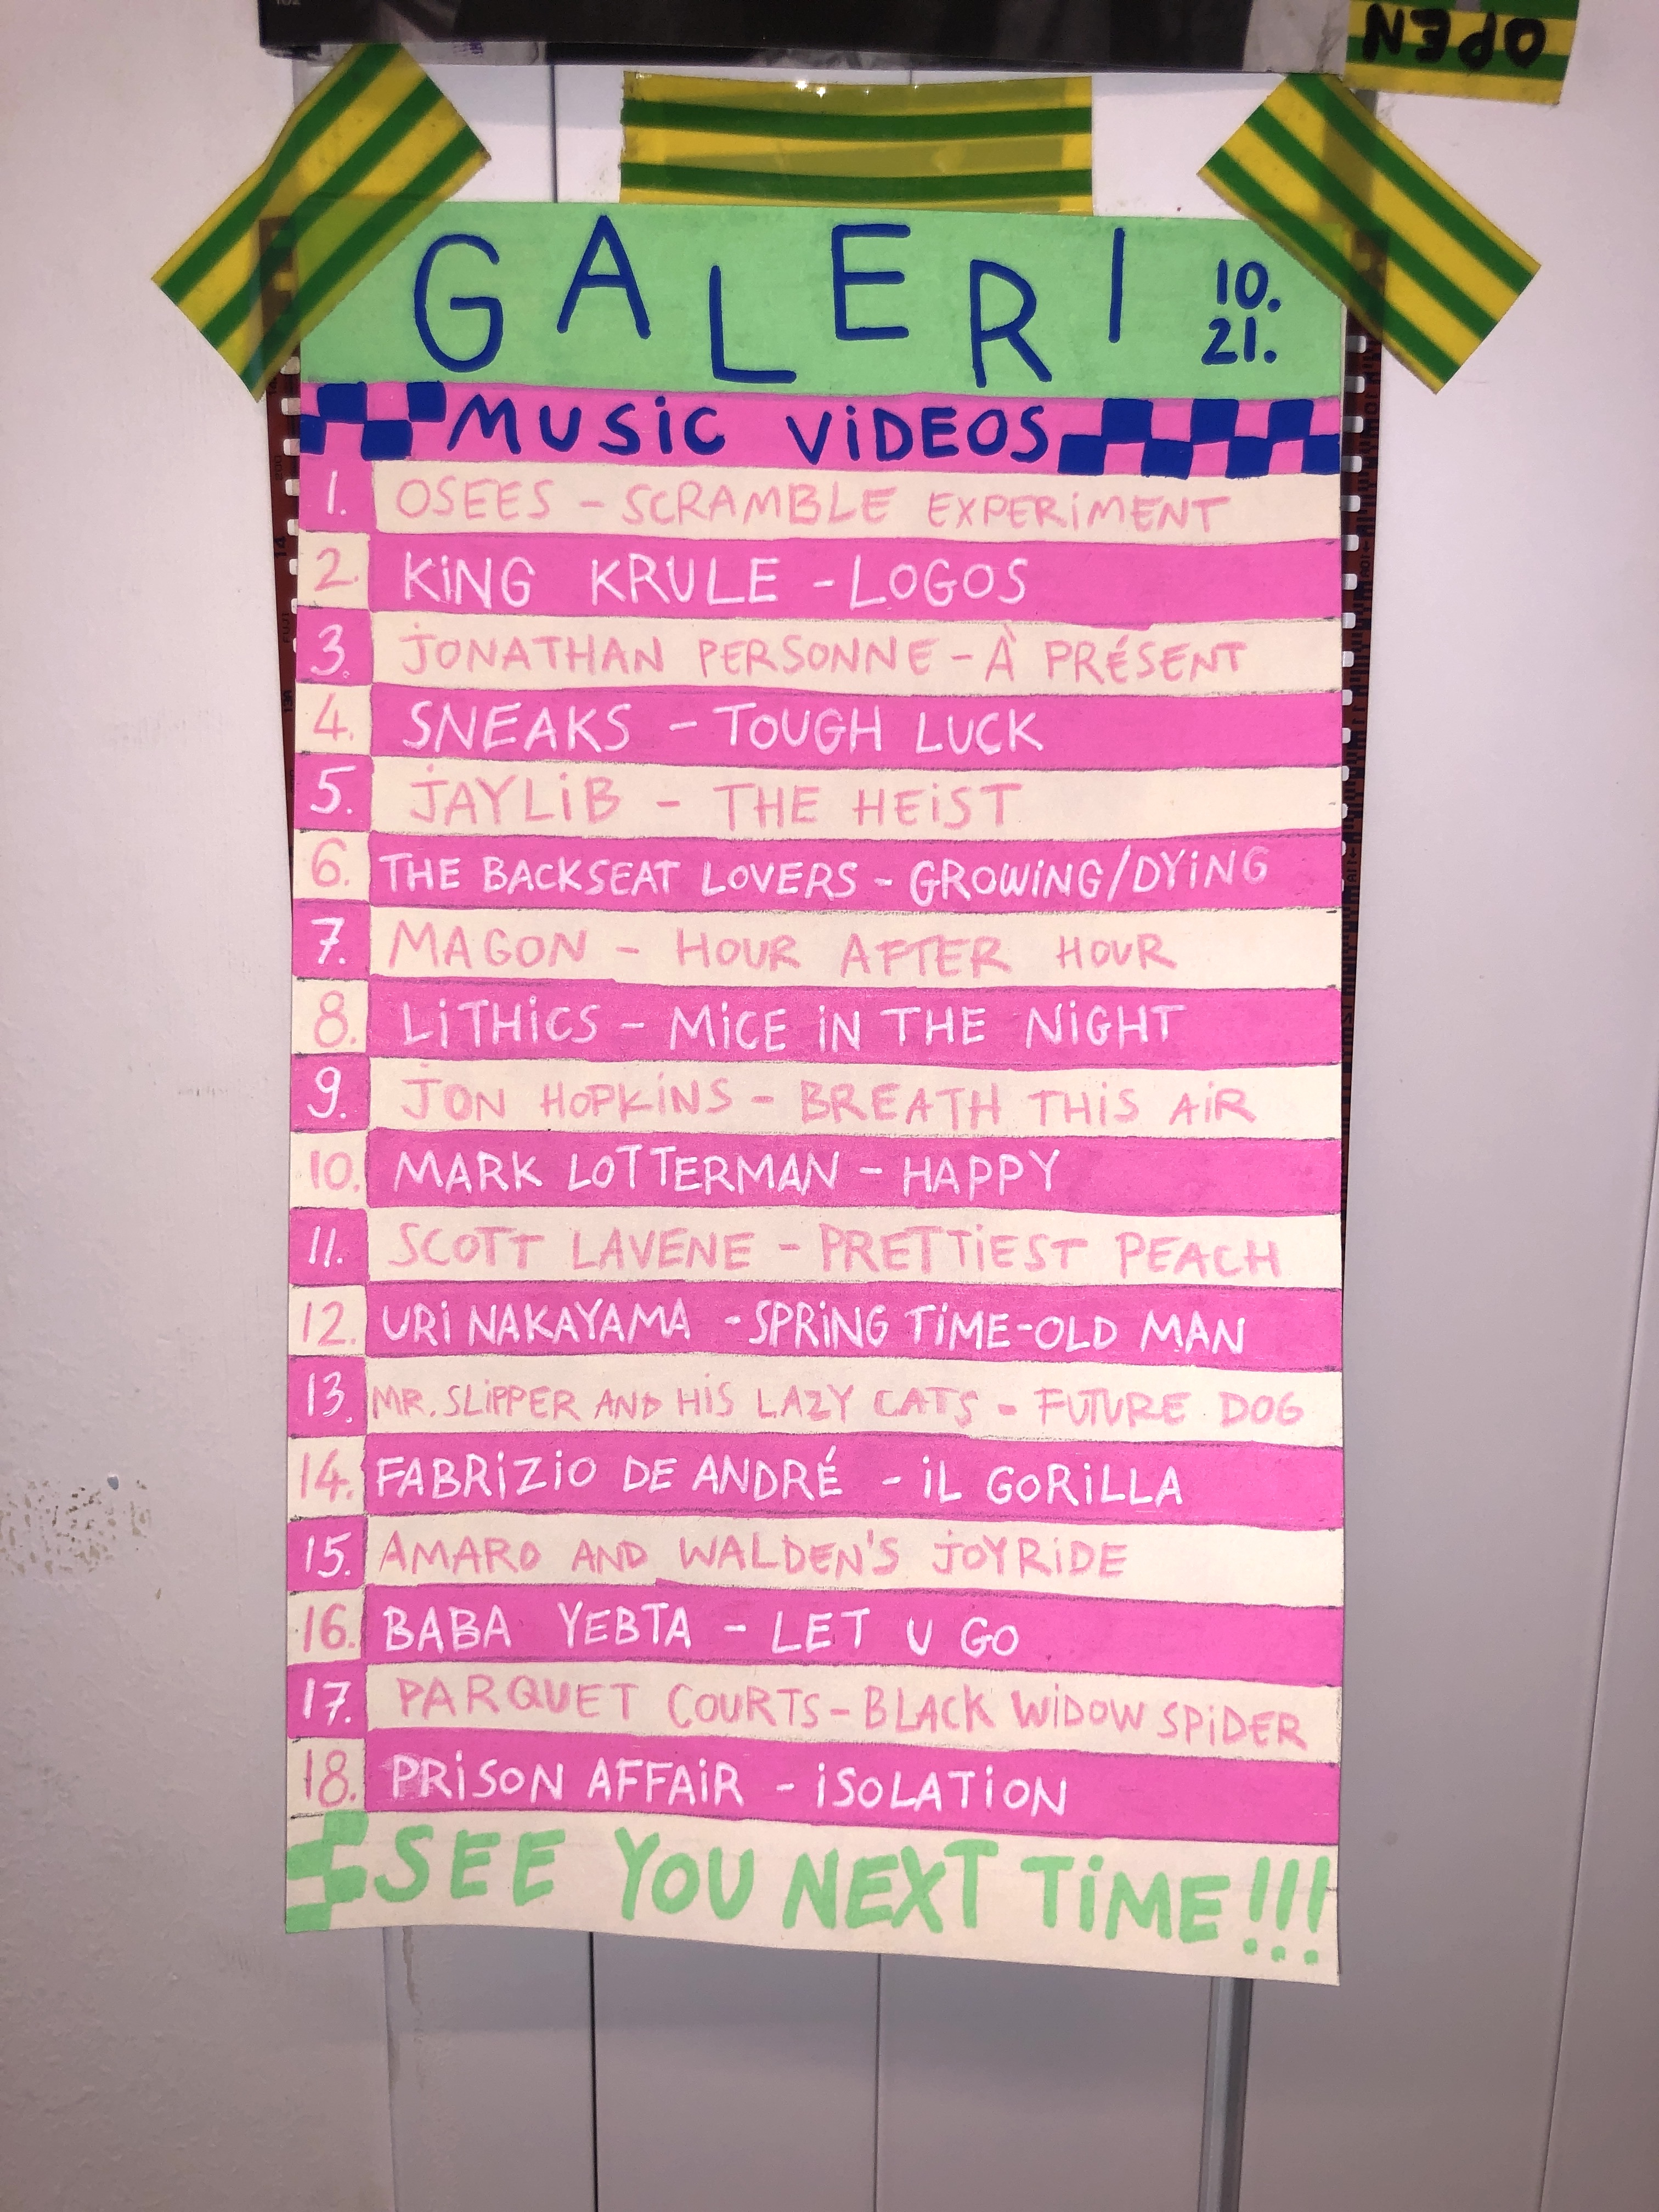 OPEN
GALERI
10.
21.
MUSiC ViDEOS
1. OSEES - SCRAMBLE EXPERiMENT
2. KiNG KRULE - LOGOS
3. JONATHAN PERSONNE - À PRÉSENT
4. SNEAKS - TOUGH LUCK
5. JAYLiB - THE HEiST
6. THE BACKSEAT LOVERS - GROWiNG/DYiNG
7. MAGON - HOUR AFTER HOUR
8. LiTHiCS - MiCE iN THE NiGHT
9. JON HOPKiNS - BREATH THiS AiR
10. MARK LOTTERMAN - HAPPY
11. SCOTT LAVENE - PRETTiEST PEACH
12. URi NAKAYAMA - SPRiNG TiME-OLD MAN
13. MR. SLiPPER AND HiS LAZY CATS - FUTURE DOG
14. FABRiZiO DE ANDRÉ - iL GORiLLA
15. AMARO AND WALDEN'S JOYRiDE
16. BABA YEBTA - LET U GO
17. PARQUET COURTS - BLACK WiDOW SPiDER
18. PRiSON AFFAiR - iSOLATiON
SEE YOU NEXT TiME!!!